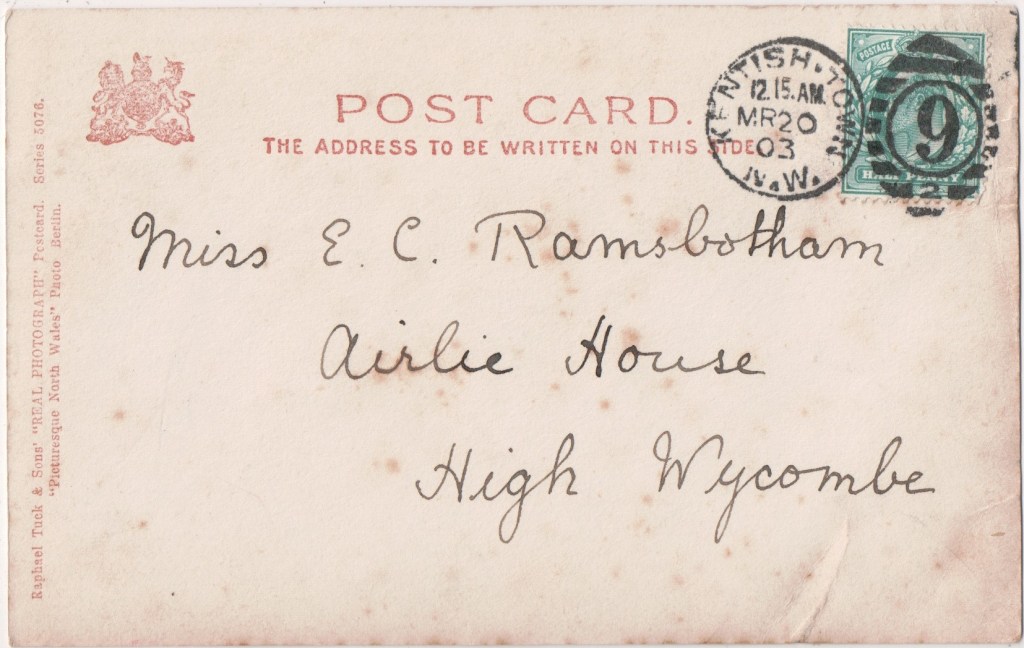 POST CARD.
THE ADDRESS TO BE WRITTEN ON THIS SIDE
KENTISH·TOWN
12.15.AM.
MR20
03
N.W.
POSTAGE
HALF PENNY
9
2
Miss E. C. Ramsbotham
Airlie House
High Wycombe
Raphael Tuck & Sons' "REAL PHOTOGRAPH" Postcard. Series 5076.
"Picturesque North Wales" Photo Berlin.